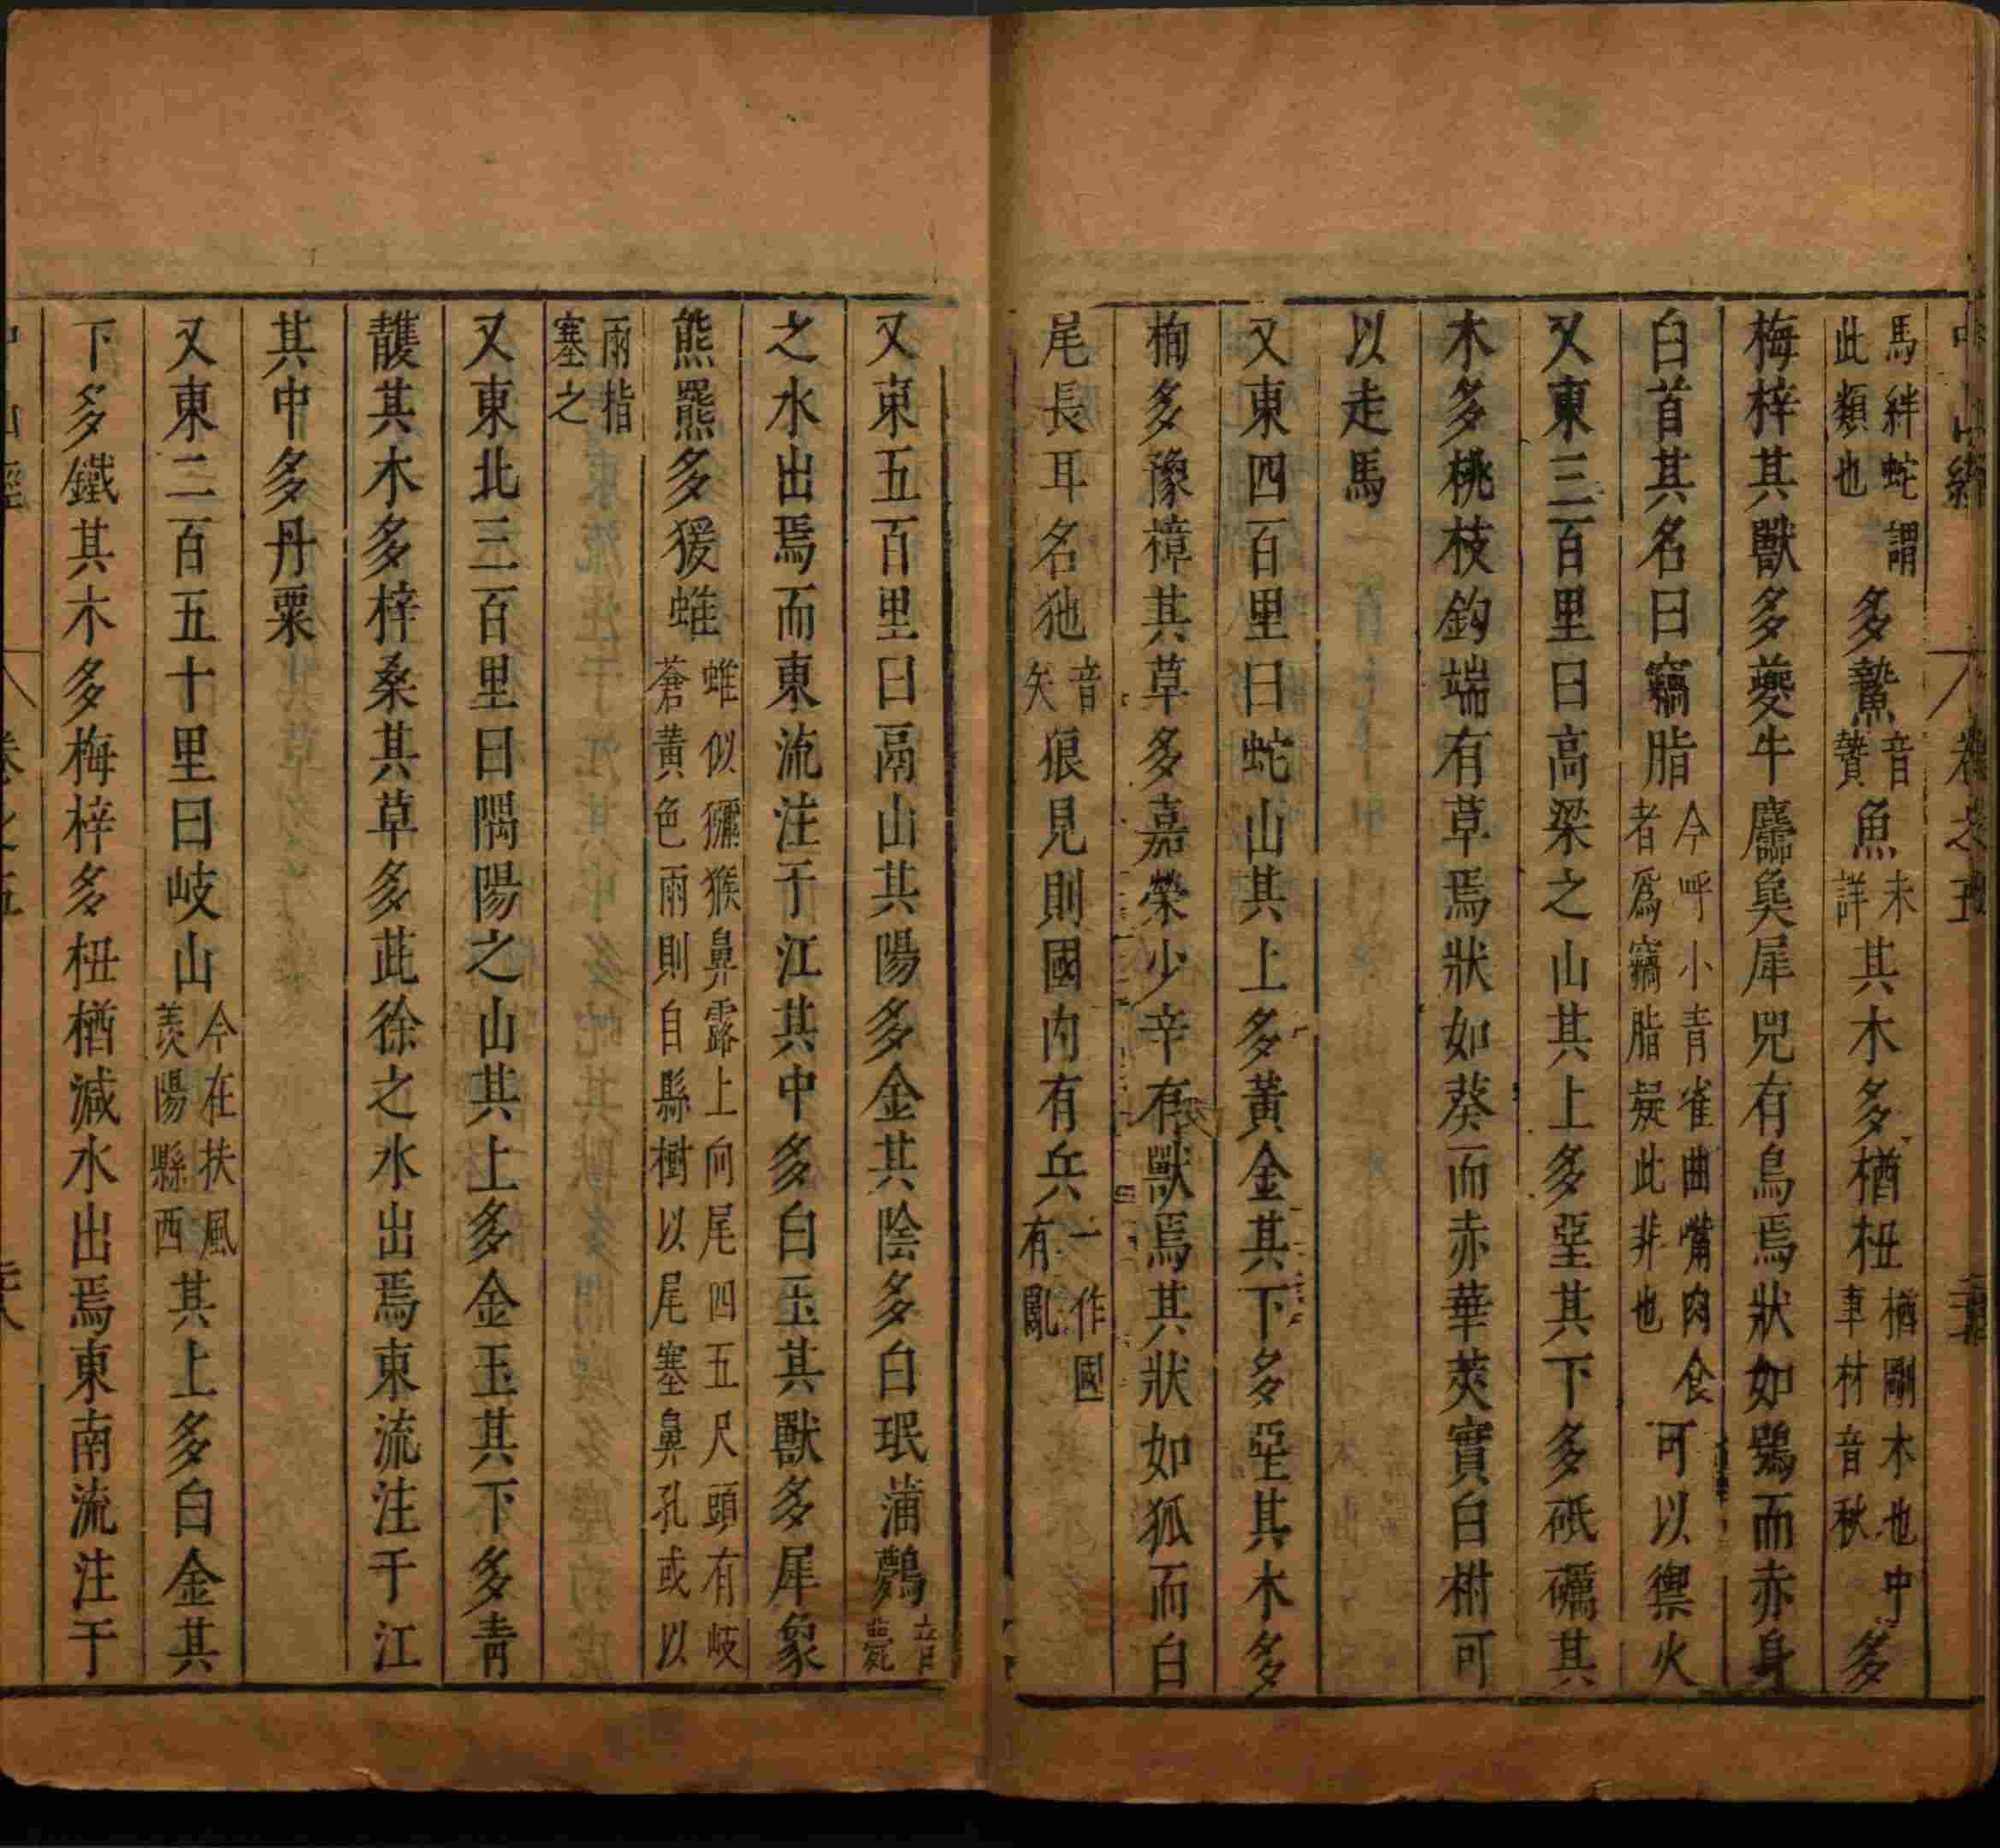 中山經 卷之五
馬絆蛇謂此類也多鷙音贄魚未詳其木多楢杻楢剛木也中車材音秋多
梅梓其獸多夔牛麢㚟犀兕有鳥焉狀如鴞而赤身
白首其名曰竊脂今呼小青雀曲嘴肉食者爲竊脂疑此非也可以禦火
又東三百里曰高梁之山其上多堊其下多砥礪其
木多桃枝鈎端有草焉狀如葵而赤華莢實白柎可
以走馬
又東四百里曰蛇山其上多黃金其下多堊其木多
栒多豫樟其草多嘉榮少辛有獸焉其狀如狐而白
尾長耳名㹢音矢狼見則國内有兵一作國有亂
又東五百里曰鬲山其陽多金其陰多白珉蒲鸏音薨
之水出焉而東流注于江其中多白玉其獸多犀象
熊羆多猨蜼蜼似獼猴鼻露上向尾四五尺頭有岐蒼黃色雨則自縣樹以尾塞鼻孔或以
兩指塞之
又東北三百里曰隅陽之山其上多金玉其下多青
雘其木多梓桑其草多茈徐之水出焉東流注于江
其中多丹粟
又東二百五十里曰岐山今在扶風羙陽縣西其上多白金其
下多鐵其木多梅梓多杻楢減水出焉東南流注于
卷之五